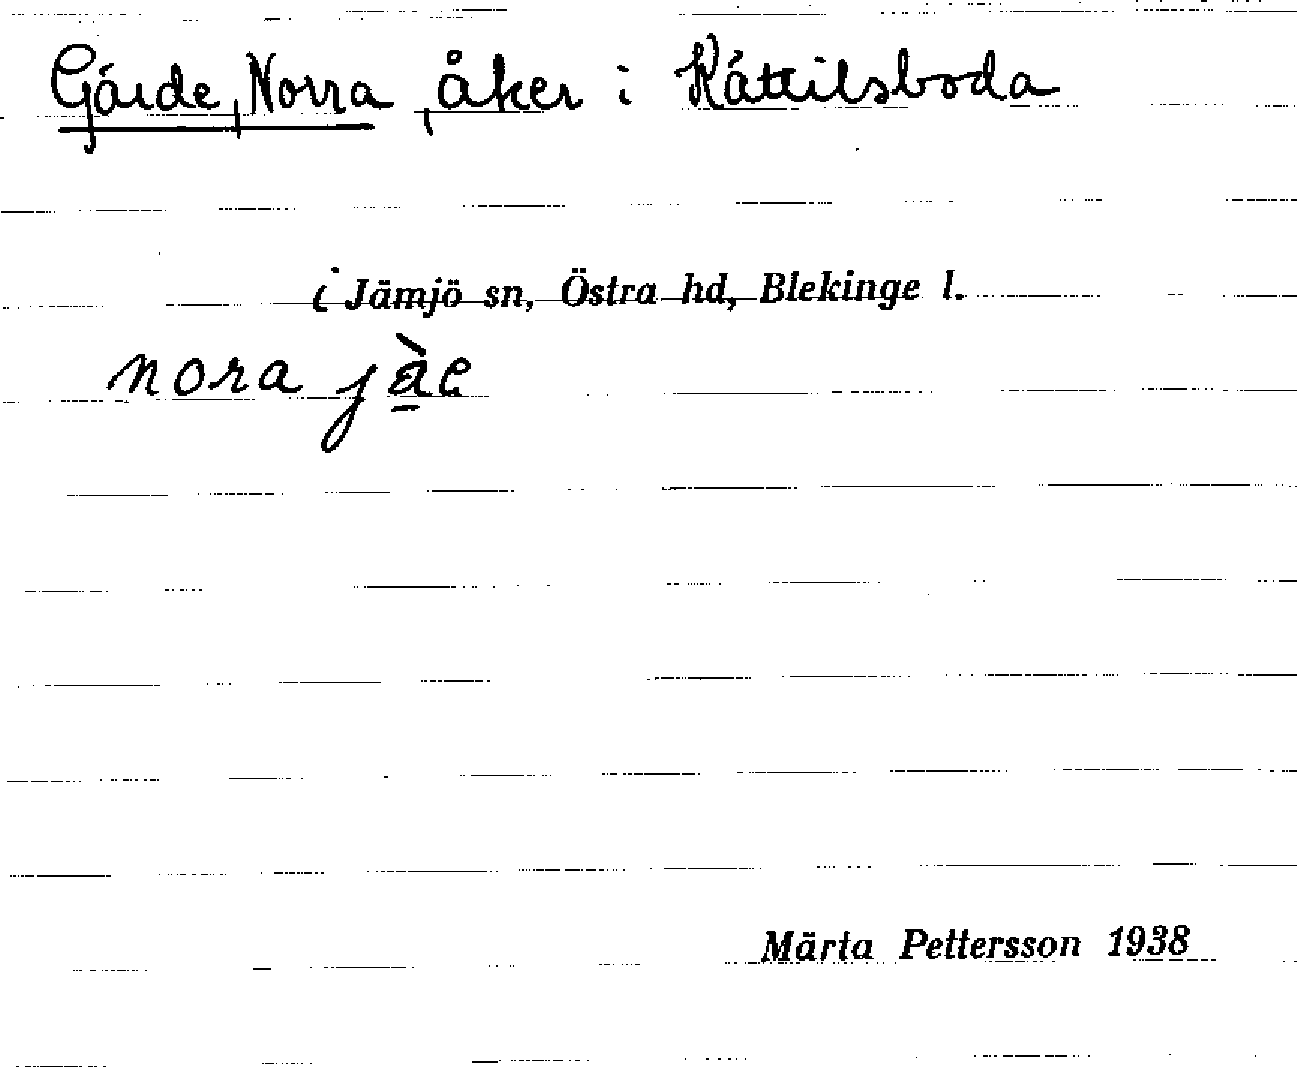 Gärde, Norra, åker i Kättilsboda
i Jämjö sn, Östra hd, Blekinge l.
nora jàe
Märta Pettersson 1938